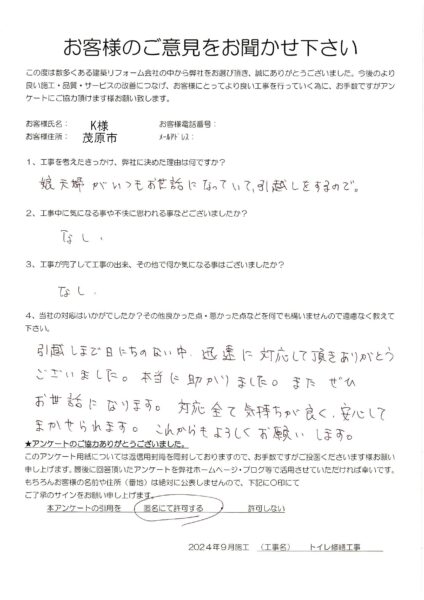 お客様のご意見をお聞かせ下さい
この度は数多くある建築リフォーム会社の中から弊社をお選び頂き、誠にありがとうございました。今後のより
良い施工・品質・サービスの改善につなげ、お客様にとってより良い工事を行っていく為に、お手数ですがアン
ケートにご協力頂けます様お願い致します。
お客様氏名： K様 お客様電話番号：
お客様住所： 茂原市 メールアドレス：
1、工事を考えたきっかけ、弊社に決めた理由は何ですか？
娘夫婦がいつもお世話になっていて、引越しをするので。
2、工事中に気になる事や不快に思われる事などございましたか？
なし、
3、工事が完了して工事の出来、その他で何か気になる事はございましたか？
なし、
4、当社の対応はいかがでしたか？その他良かった点・悪かった点などを何でも構いませんので遠慮なく教えて
下さい。
引越しまで日にちのない中、迅速に対応して頂きありがとう
ございました。本当に助かりました。また ぜひ
お世話になります。対応全て気持ちが良く、安心して
まかせられます。これからもよろしくお願いします。
★アンケートのご協力ありがとうございました。
このアンケート用紙については返信用封筒を同封しておりますので、お手数ですがご投函くださいます様お願い
申し上げます。最後に回答頂いたアンケートを弊社ホームページ・ブログ等で活用させていただければ幸いです。
もちろんお客様の名前や住所（番地）は絶対に公表しませんので、下記に〇印にて
ご了承のサインをお願い申し上げます。
本アンケートの引用を 匿名にて許可する ・ 許可しない
2024年9月施工 （工事名） トイレ修繕工事